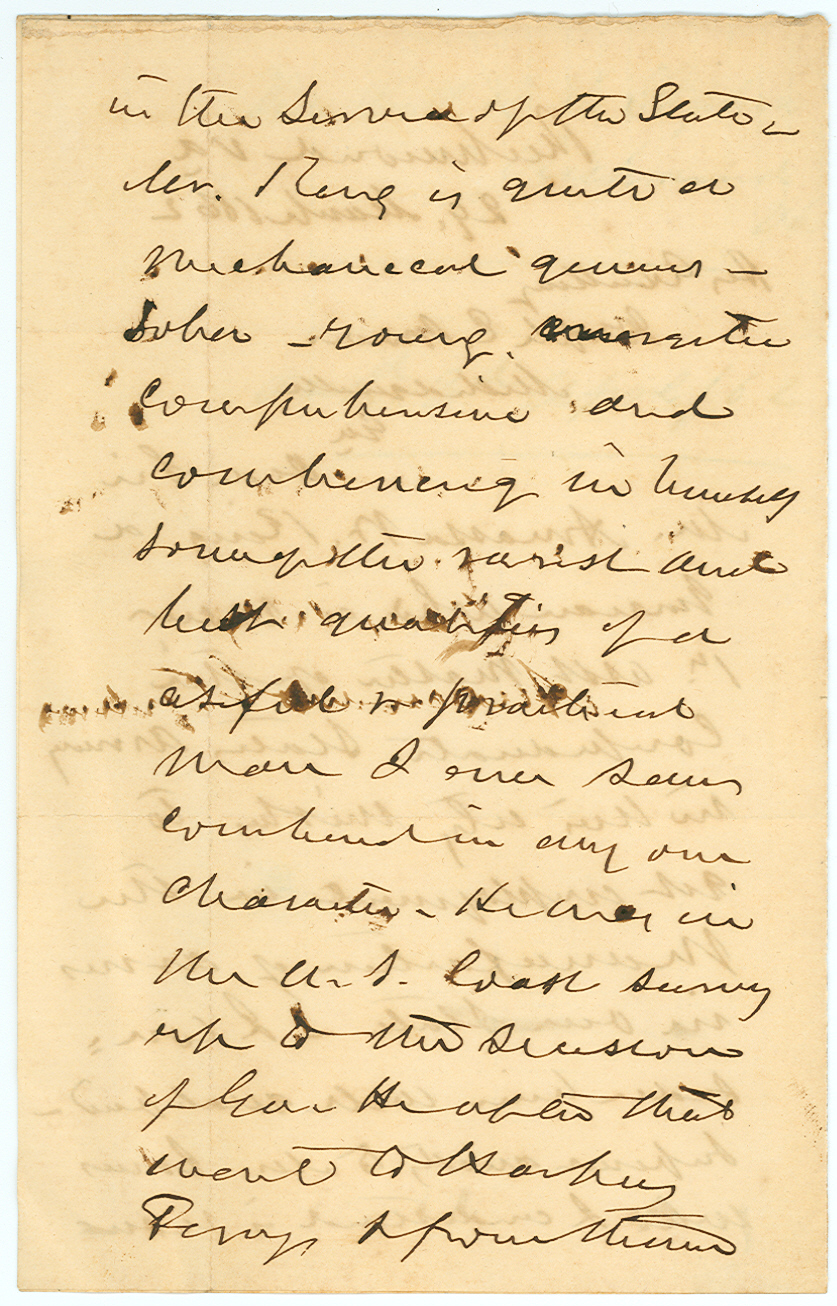 in the Service of the State –
Mr. King is quite a
mechanical genius –
Sober – young,
comprehensive and
combining in himself
some of the rarest and
best qualities of a
useful & practical
man I ever saw
combined in any one
character – He was in
the U. S. Coast Survey
up to the Secession
of Geo. He after that
went to Harpers
Ferry & from thence